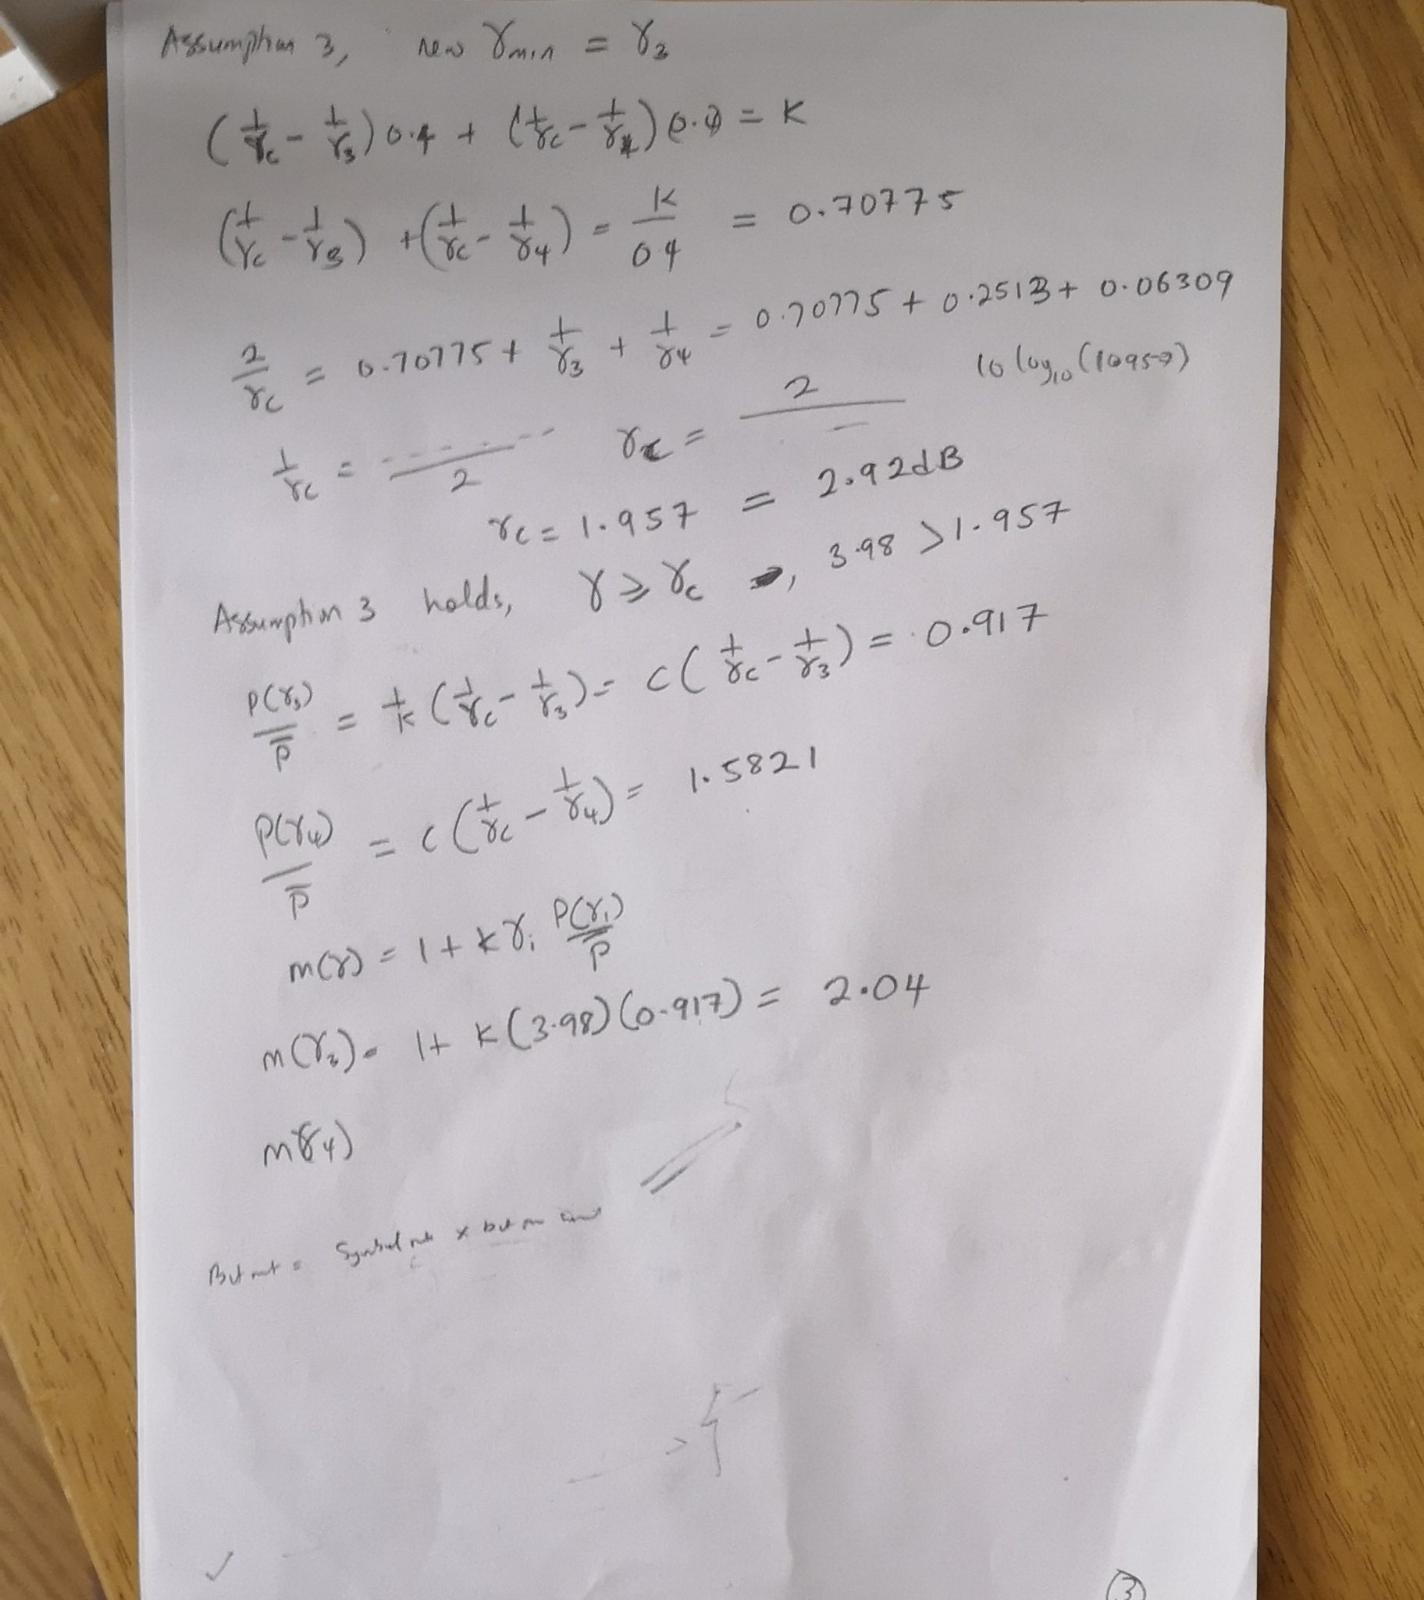 Assumption 3, new γmin = γ3
(1/γc - 1/γ3) 0.4 + (1/γc - 1/γ4) 0.4 = K
(1/γc - 1/γ3) + (1/γc - 1/γ4) = K/04 = 0.70775
2/γc = 0.70775 + 1/γ3 + 1/γ4 = 0.70775 + 0.2513 + 0.06309
10 log10 (1.957)
1/γc = ------/2 γc = 2/—
γc = 1.957 = 2.92dB
Assumption 3 holds, γ ≥ γc, 3.98 > 1.957
P(γ3)/P̄ = 1/K (1/γc - 1/γ3) = c(1/γc - 1/γ3) = 0.917
P(γ4)/P̄ = c(1/γc - 1/γ4) = 1.5821
m(γ) = 1 + kγi P(γi)/P̄
m(γ3) = 1 + K(3.98)(0.917) = 2.04
m(γ4)
= Symbol x
3